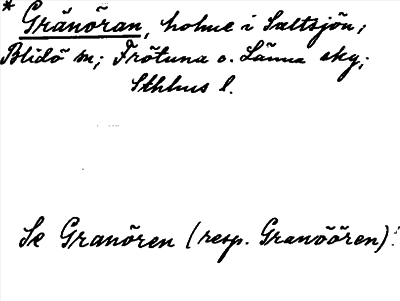 * Gränöran, holme i Saltsjön;
Blidö sn; Frötuna o. Länna skg;
Sthlms l.
Se Granören (resp. Granöören)!